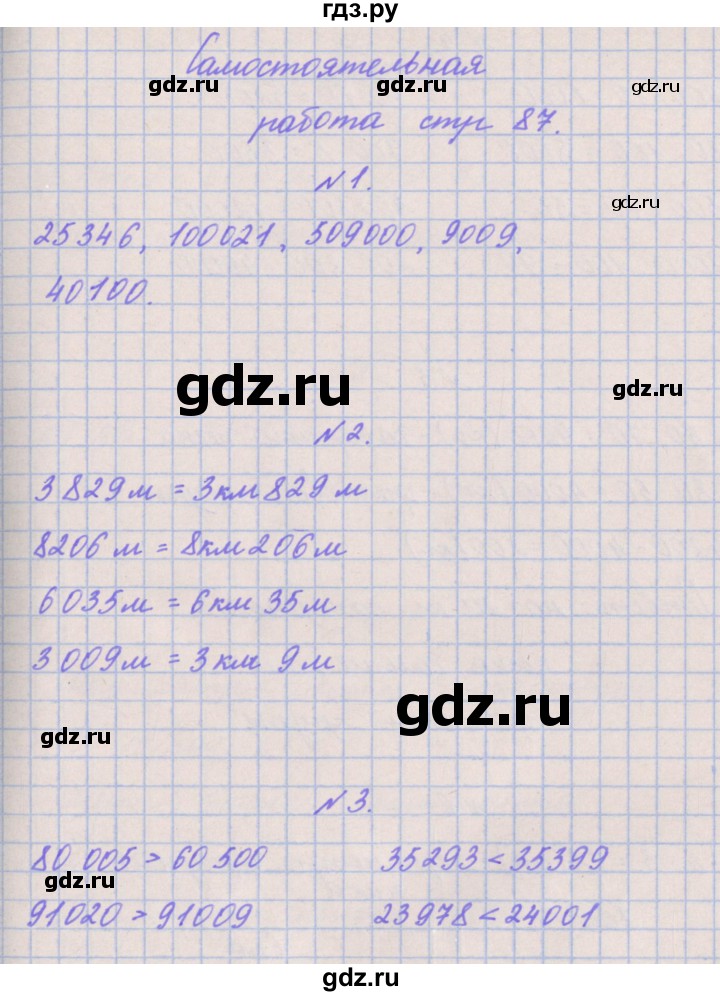 гдз.ру
Самостоятельная
gdz.ru gdz.ru gdz.ru
работа стр 87.
№1.
gdz.ru
25346, 100021, 509000, 9009,
40100.
gdz.ru gdz.ru
№2.
3829м = 3км 829м
8206м = 8км 206м
6035м = 6км 35м
3009м = 3км 9м
gdz.ru
gdz.ru
№3.
80 005 > 60 500 35293 < 35399
gdz.ru
91020 > 91009 23978 < 24001
gdz.ru